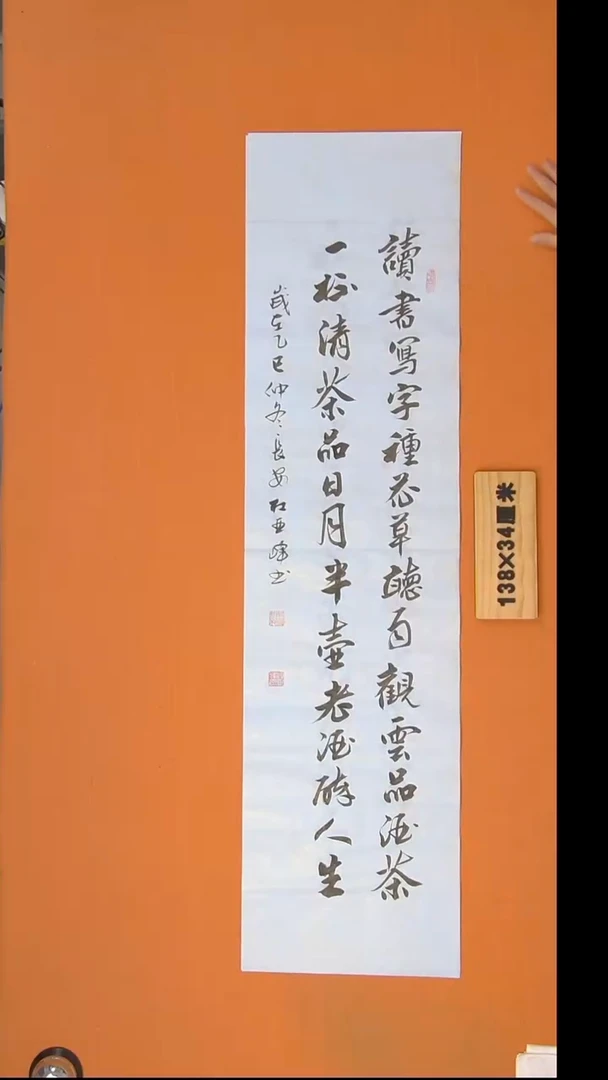 讀書寫字種花草聽雨觀雲品酒茶
一杯清茶品日月半壺老酒醉人生
歲在乙巳仲冬長安亚峰书
138X34厘米